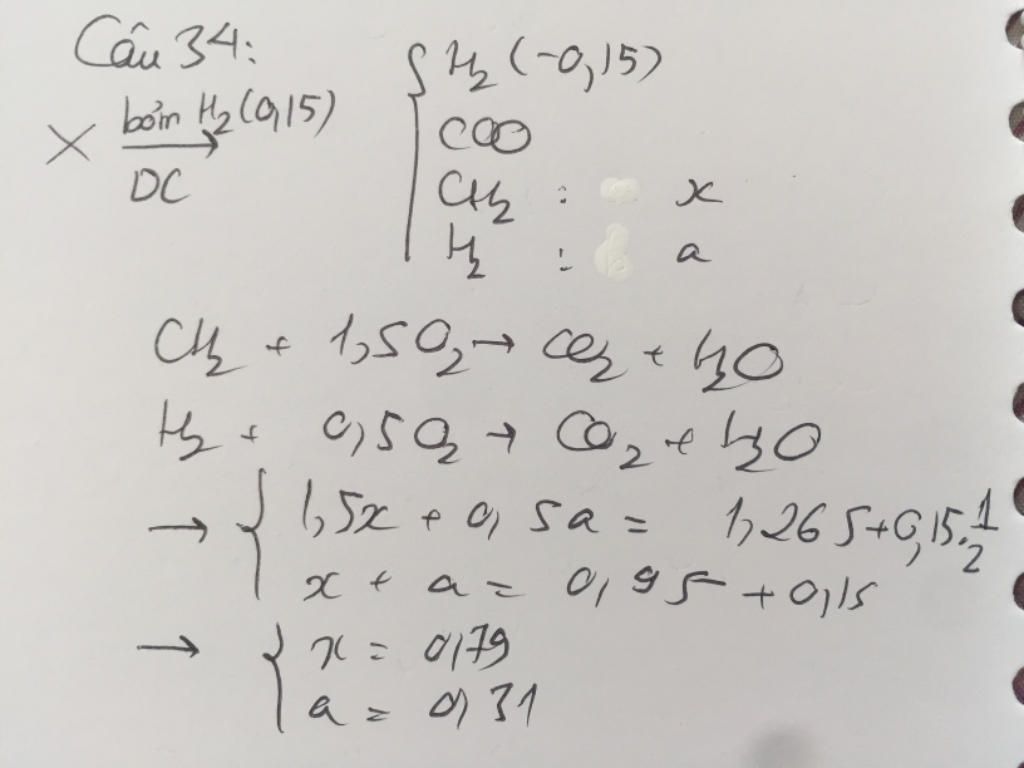 Câu 34:
X bơm H₂ (0,15) → ĐC { H₂ (-0,15)
COO
CH₂ : x
H₂ : a
CH₂ + 1,5O₂ → CO₂ + H₂O
H₂ + 0,5O₂ → CO₂ + H₂O
→ { 1,5x + 0,5a = 1,265 + 0,15.1/2
x + a = 0,95 + 0,15
→ { x = 0,79
a = 0,31